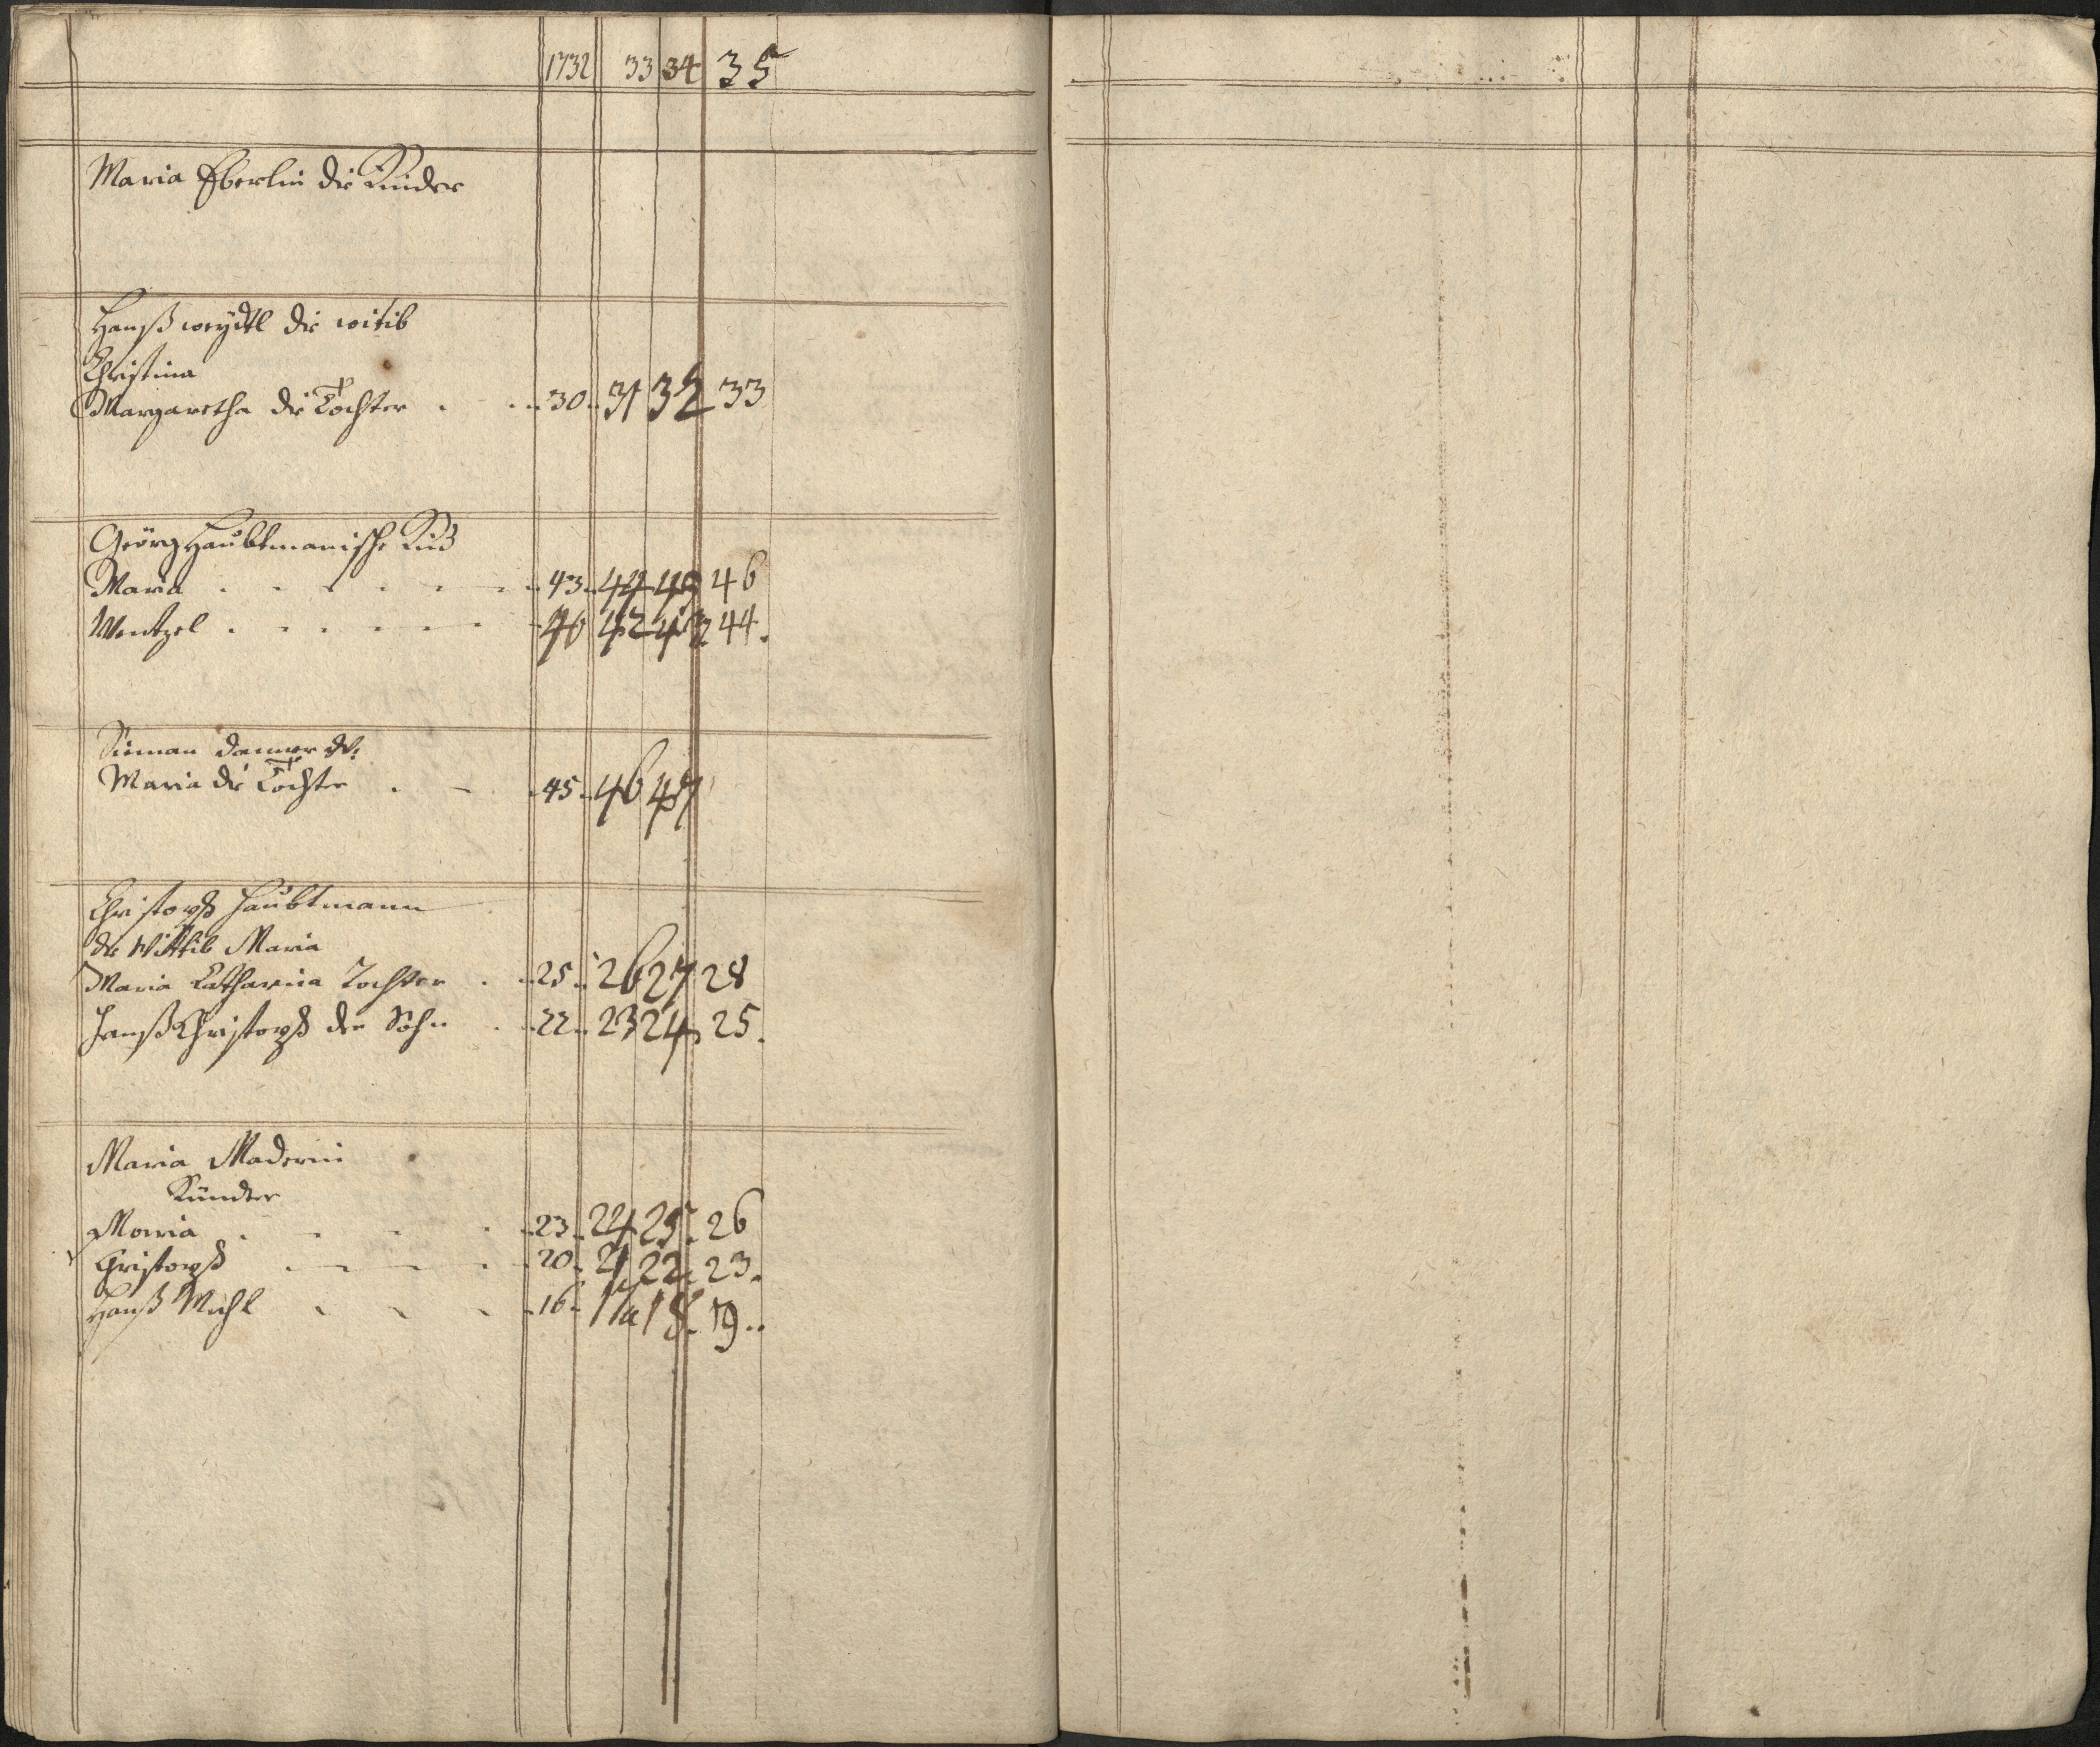 1732 33 34 35
Maria Eberlin die Kinder
Hanß weydl die witib
Christina
Margaretha die Tochter . . 30 . 31 32 33
Geörg Haubtmanische Kind
Maria . . . . . . 43 . 44 45 46
Wentzel . . . . . . 40 42 43 44 .
Simon Danner
Maria die Tochter . . 45 . 46 47
Christoph Haubtmann
die Wittib Maria
Maria Catharina Tochter . 25 . 26 27 28
Hanß Christoph der Sohn . 22 . 23 24 25 .
Maria Maderin
Kinder
Maria . . . . 23 . 24 25 . 26
Christoph . . . . 20 . 21 22 . 23 .
Hanß Michl . . . 16 . 17 18 . 19 . .